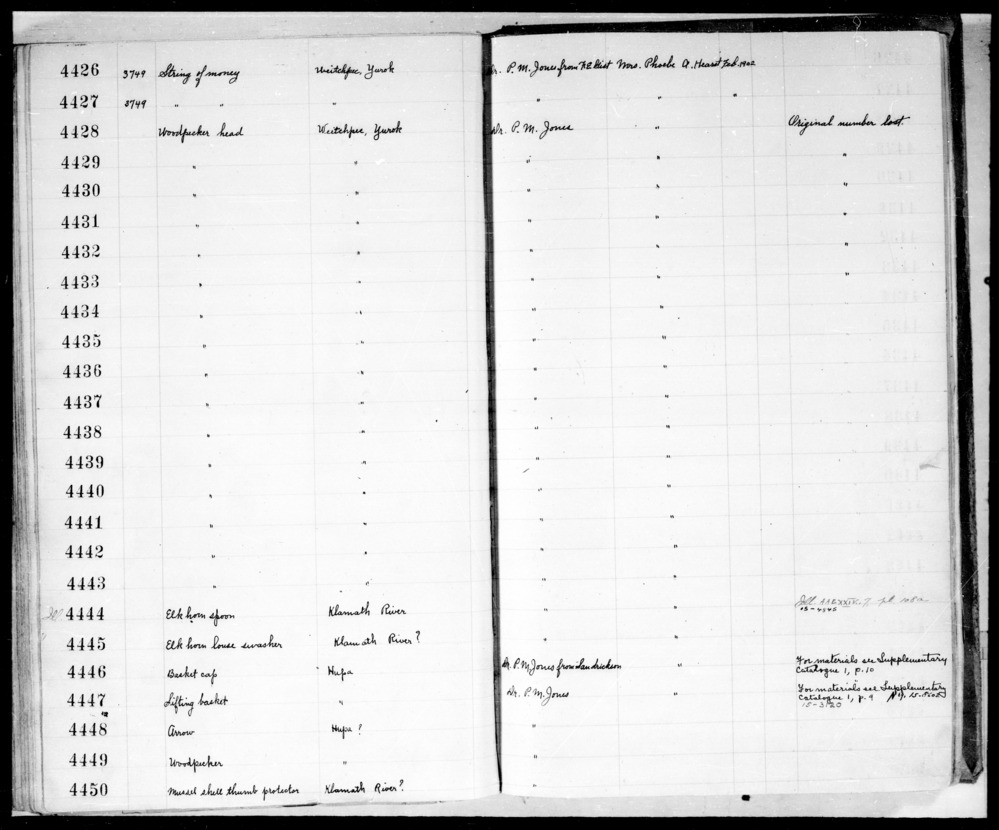 4426 3749 String of money Weitchpec, Yurok Dr. P. M. Jones from Mrs. Phoebe A. Hearst Feb. 1902
4427 3749 " " " " "
4428 Woodpecker head Weitchpec, Yurok Dr. P. M. Jones " Original number lost
4429 " " " " "
4430 " " " " "
4431 " " " " "
4432 " " " " "
4433 " " " " "
4434 " " " "
4435 " " " "
4436 " " " "
4437 " " " "
4438 " " " "
4439 " " " "
4440 " " " "
4441 " " " "
4442 " " " "
4443 " " " "
4444 Elk horn spoon Klamath River " "
4445 Elk horn louse swasher Klamath River? " "
4446 Basket cap Hupa Dr. P. M. Jones from " For materials see Supplementary
Catalogue 1, p. 10
4447 Lifting basket " Dr. P. M. Jones " For materials see Supplementary
Catalogue 1, p. 9
15-3120
4448 Arrow Hupa? "
4449 Woodpecker " "
4450 Mussel shell thumb protector Klamath River? "